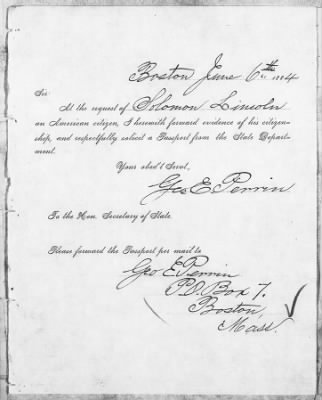 Boston June 6th 1884
Sir:
At the request of Solomon Lincoln
an American citizen, I herewith forward evidence of his citizen-
ship, and respectfully solicit a Passport from the State Depart-
ment.
Your obed't Servt,
Geo E. Perrin
To the Hon. Secretary of State.
Please forward the Passport per mail to
Geo E. Perrin
P.O. Box 7.
Boston,
Mass.